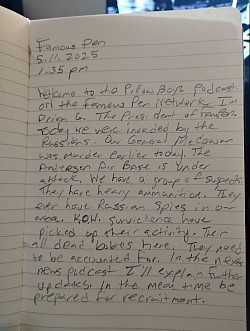 Famous Pen
5.11.2025
1:35 pm
Welcome to the Pillow Boyz podcast
on the Famous Pen Network. I'm
Drign G. The President of
Today we were invaded by the
Russians. Our General McGowan
was murder earlier today. The
Andersen Air Base is under
attack. We have a group of suspects
They have heavy ammunition. They
even have Russian Spies in our
area. K.O.W. survilence have
picked up their activity. Their
all dead babes here. They need
to be accounted for. In the next
news podcast I'll explain further
updates. In the mean time be
prepared for recruitment.